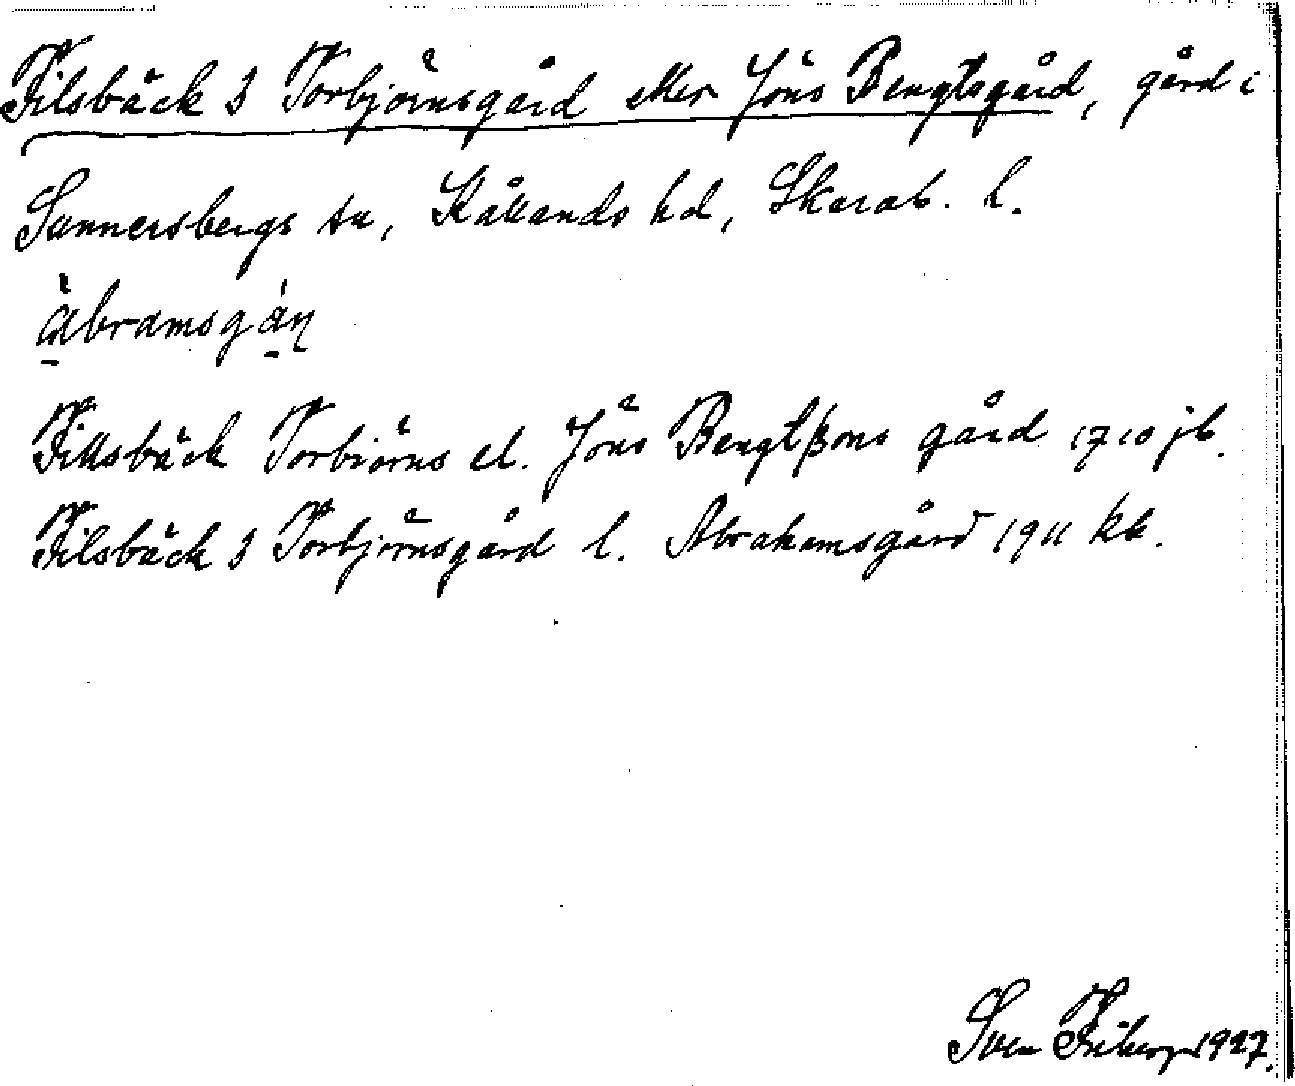 Filsbäck 3 Torbjörnsgård eller Jöns Bengtsgård, gård i
Sunnersbergs sn, Kållands hd, Skarab. l.
àbramsgáŋ
Fillsbäck Torbiörns el. Jöns Bengtßons gård 1710 jb.
Filsbäck 3 Torbjörnsgård l. Abrahamsgård 1911 kk.
Sven Friberg 1927.